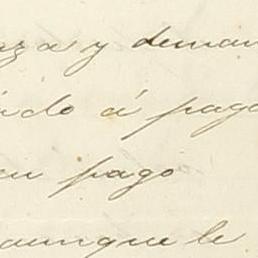 zas y deman
ndo á paga
su pago
aunque le